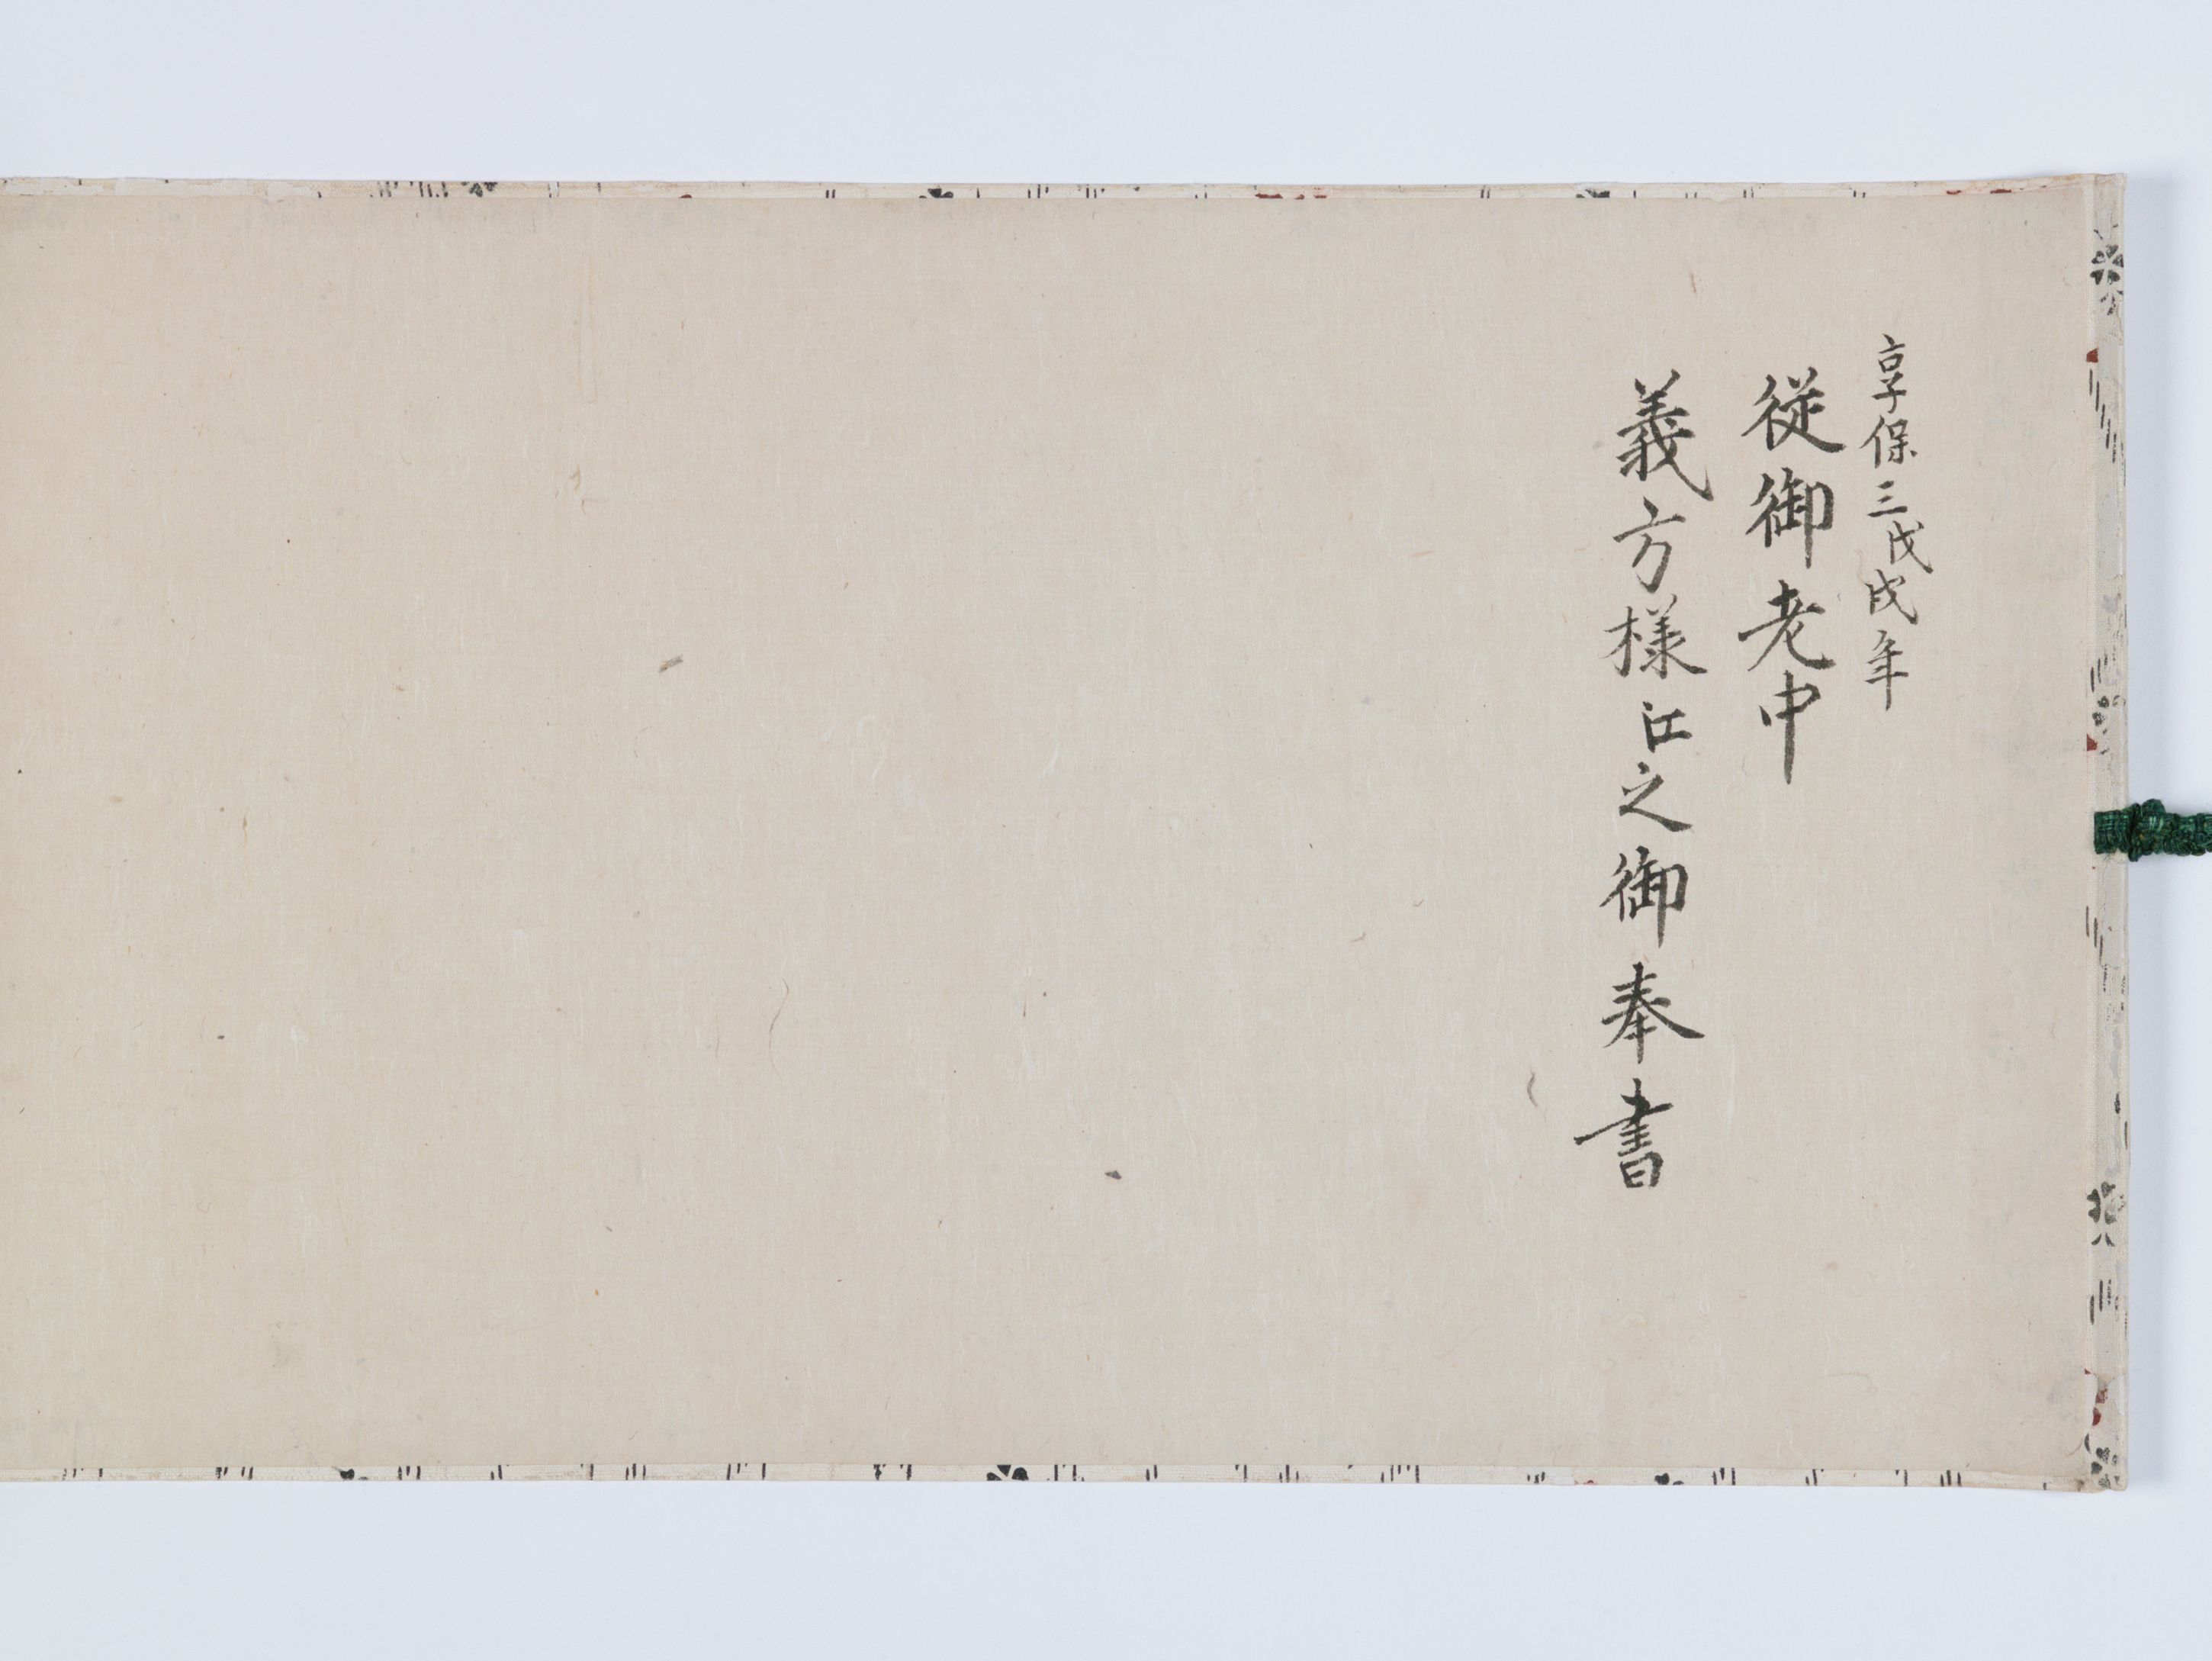 享保三戊戌年
従御老中
義方様江之御奉書